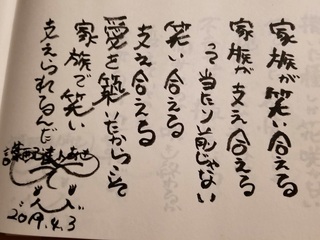 家族が笑い合える
家族が支え合える
って当たり前じゃない
笑い合える
支え合える
愛を築いたからこそ
家族で笑い
支えられるんだ
2019.4.3